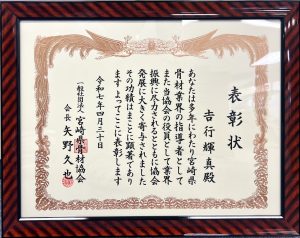 表彰状
吉行輝真殿
あなたは多年にわたり宮崎県
骨材業界の指導者として
また当協会の役員として業界
振興に尽力されるとともに協会
発展に大きく寄与されました
その功績はまことに顕著であり
ますよってここに表彰します
令和七年四月三十日
一般社団法人宮崎県骨材協会
会長矢野久也